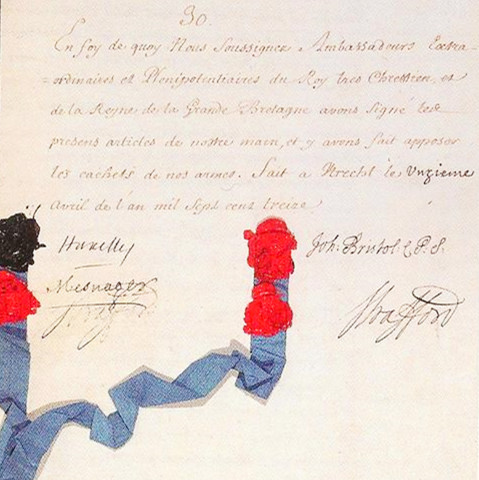 30.
En foy de quoy Nous Soussignez Ambassadeurs Extra-
-ordinaires et Plenipotentiaires du Roy tres Chrestien, et
de la Reyne de la Grande Bretagne avons signé les
presens articles de nostre main, et y avons fait apposer
les cachets de nos armes. Fait a Utrecht le Unzieme
Avril de l'an mil Sept cent treize
Huxelles
Joh. Bristol C. P. S.
Mesnager
Strafford